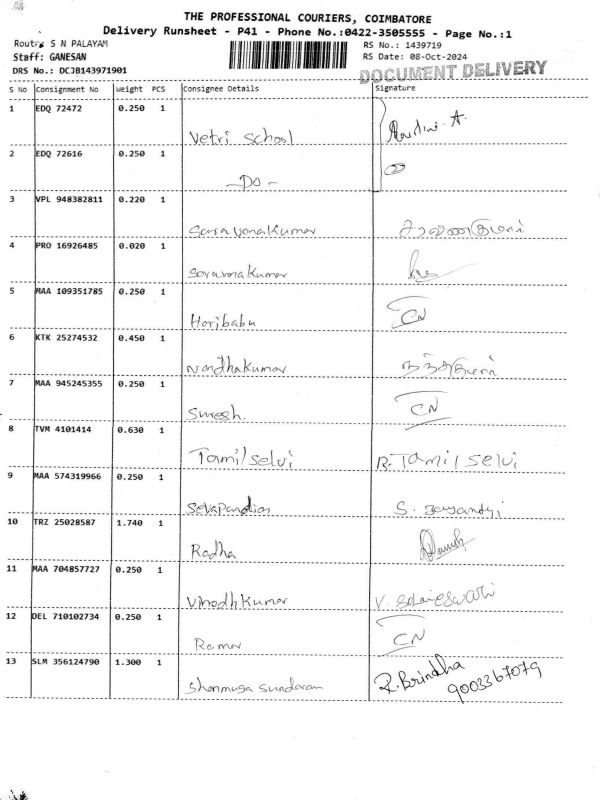 THE PROFESSIONAL COURIERS, COIMBATORE
Delivery Runsheet - P41 - Phone No.:0422-3505555 - Page No.:1
Route: S N PALAYAM
RS No.: 1439719
Staff: GANESAN
RS Date: 08-Oct-2024
DRS No.: DCJB143971901
DOCUMENT DELIVERY
S No Consignment No Weight PCS Consignee Details Signature
1 EDQ 72472 0.250 1
Vetri school
2 EDQ 72616 0.250 1
-Do-
3 VPL 948382811 0.220 1
Saravanakumar சரவணகுமார்
4 PRO 16926485 0.020 1
Saravanakumar
5 MAA 109351785 0.250 1
Haribabu CN
6 KTK 25274532 0.450 1
Nandhakumar நந்தகுமார்
7 MAA 945245355 0.250 1
Suresh CN
8 TVM 4101414 0.630 1
Tamilselvi R. Tamilselvi
9 MAA 574319966 0.250 1
Selvapandian S.
10 TRZ 25028587 1.740 1
Radha
11 MAA 704857727 0.250 1
Vinodhkumar V.
12 DEL 710102734 0.250 1
Raman CN
13 SLM 356124790 1.300 1
Shanmuga Sundaram R. Brindha
9003367079